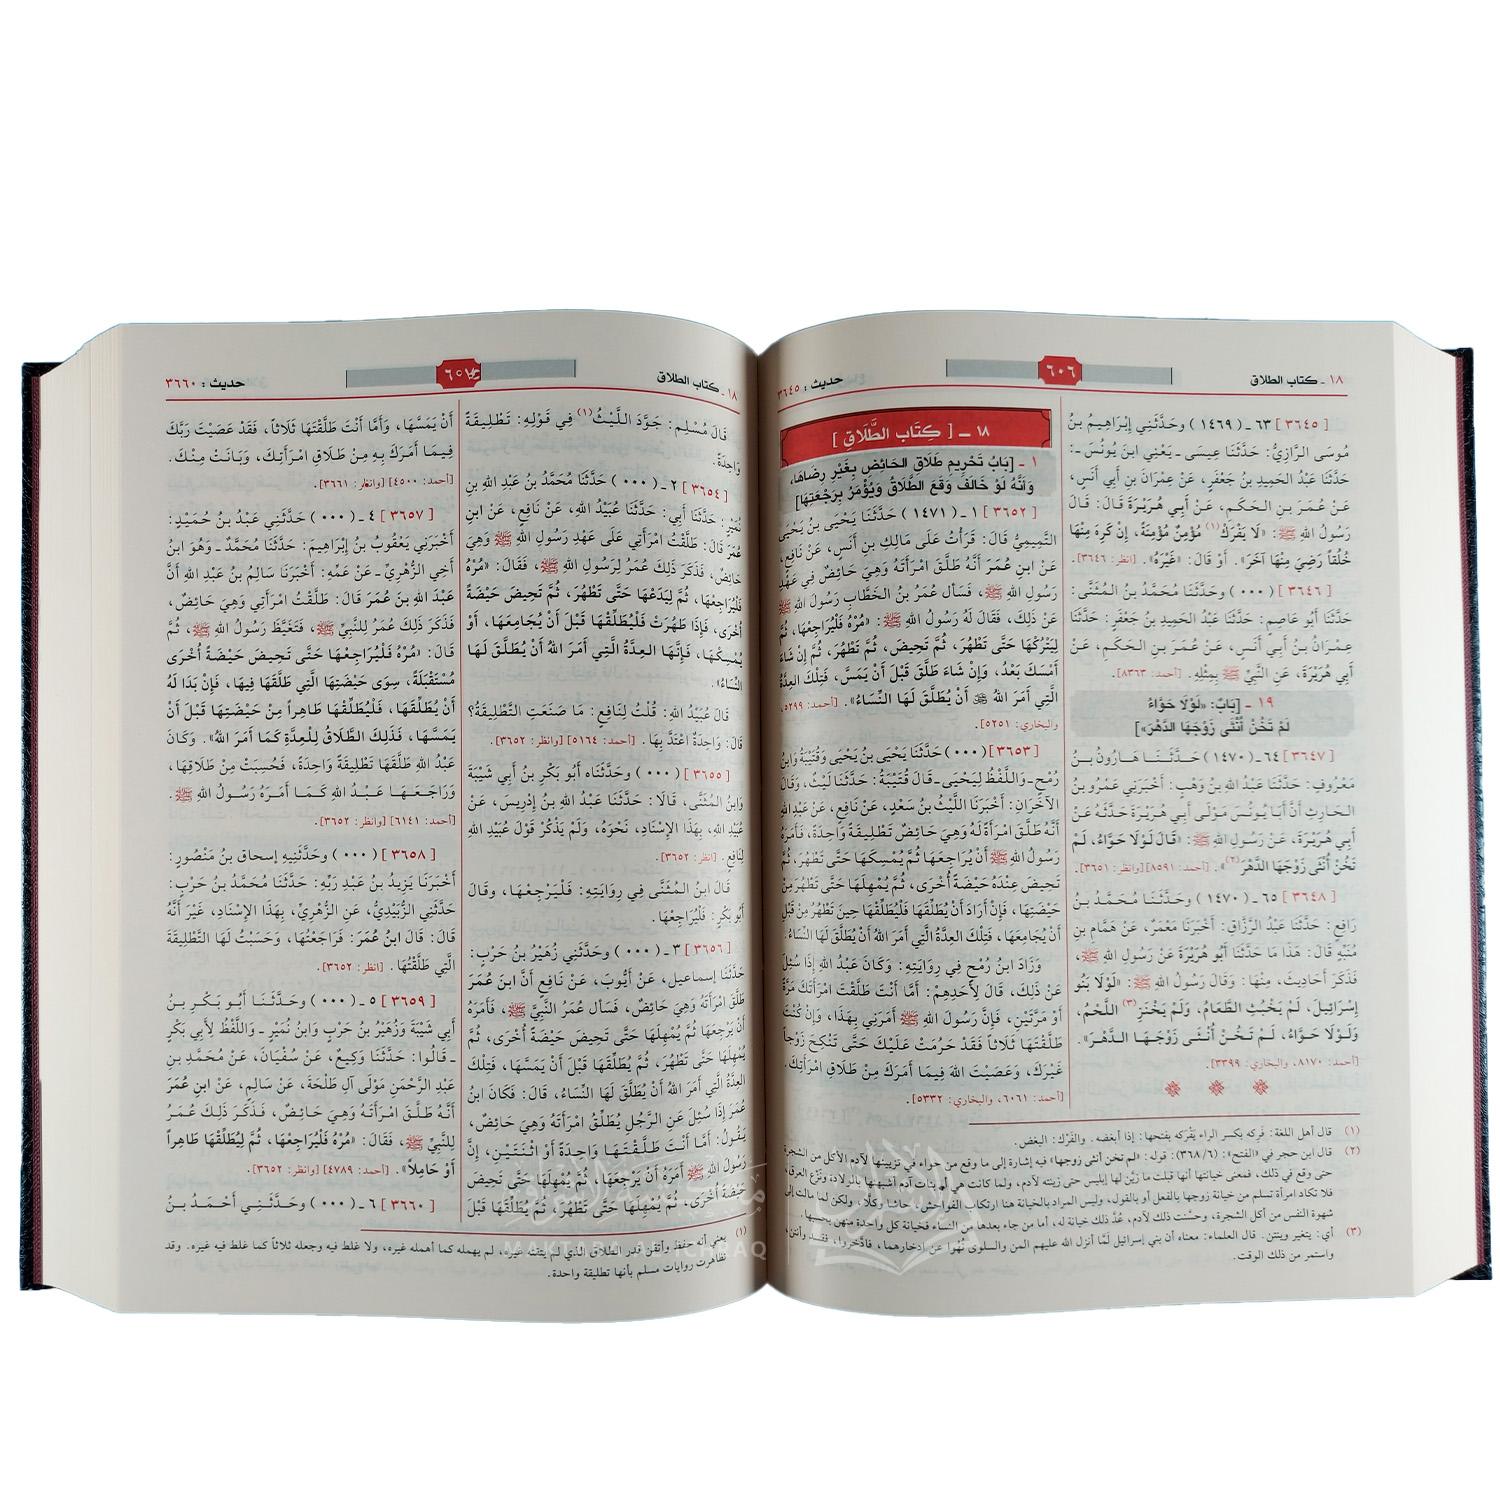 ١٨ ـ كتاب الطلاق
٦٠٦
حديث : ٣٦٤٥
[ ٣٦٤٥ ] ٦٣ ـ ( ١٤٦٩ ) وحَدَّثَنِي إِبْرَاهِيمُ بنُ
مُوسَى الرَّازِيُّ: حَدَّثَنَا عِيسَى ـ يَعْنِي ابنَ يُونُسَ ـ:
حَدَّثَنَا عَبْدُ الحَمِيدِ بنُ جَعْفَرٍ، عَنْ عِمْرَانَ بنِ أَبِي أَنَسٍ،
عَنْ عُمَرَ بنِ الحَكَمِ، عَنْ أَبِي هُرَيْرَةَ قَالَ: قَالَ
رَسُولُ اللهِ ﷺ: «لَا يَفْرَكْ(١) مُؤْمِنٌ مُؤْمِنَةً، إِنْ كَرِهَ مِنْهَا
خُلُقاً رَضِيَ مِنْهَا آخَرَ». أَوْ قَالَ: «غَيْرَهُ». [انظر: ٣٦٤٦].
[ ٣٦٤٦ ] ( ٠٠٠ ) وحَدَّثَنَا مُحَمَّدُ بنُ المُثَنَّى:
حَدَّثَنَا أَبُو عَاصِمٍ: حَدَّثَنَا عَبْدُ الحَمِيدِ بنُ جَعْفَرٍ: حَدَّثَنَا
عِمْرَانُ بنُ أَبِي أَنَسٍ، عَنْ عُمَرَ بنِ الحَكَمِ، عَنْ
أَبِي هُرَيْرَةَ، عَنِ النَّبِيِّ ﷺ بِمِثْلِهِ. [أحمد: ٨٣٦٣].
١٩ ـ [بَابٌ: «لَوْلَا حَوَّاءُ
لَمْ تَخُنْ أُنْثَى زَوْجَهَا الدَّهْرَ»]
[ ٣٦٤٧ ] ٦٤ ـ ( ١٤٧٠ ) حَدَّثَنَا هَارُونُ بنُ
مَعْرُوفٍ: حَدَّثَنَا عَبْدُ اللهِ بنُ وَهْبٍ: أَخْبَرَنِي عَمْرُو بنُ
الحَارِثِ أَنَّ أَبَا يُونُسَ مَوْلَى أَبِي هُرَيْرَةَ حَدَّثَهُ عَنْ
أَبِي هُرَيْرَةَ، عَنْ رَسُولِ اللهِ ﷺ: «قَالَ لَوْلَا حَوَّاءُ، لَمْ
تَخُنْ أُنْثَى زَوْجَهَا الدَّهْرَ(٢)». [أحمد: ٨٥٩١] [وانظر: ٣٦٥١].
[ ٣٦٤٨ ] ٦٥ ـ ( ١٤٧٠ ) وحَدَّثَنَا مُحَمَّدُ بنُ
رَافِعٍ: حَدَّثَنَا عَبْدُ الرَّزَّاقِ: أَخْبَرَنَا مَعْمَرٌ، عَنْ هَمَّامِ بنِ
مُنَبِّهٍ قَالَ: هَذَا مَا حَدَّثَنَا أَبُو هُرَيْرَةَ عَنْ رَسُولِ اللهِ ﷺ،
فَذَكَرَ أَحَادِيثَ، مِنْهَا: وَقَالَ رَسُولُ اللهِ ﷺ: «لَوْلَا بَنُو
إِسْرَائِيلَ، لَمْ يَخْبُثِ الطَّعَامُ، وَلَمْ يَخْنَزِ(٣) اللَّحْمُ،
وَلَوْلَا حَوَّاءُ، لَمْ تَخُنْ أُنْثَى زَوْجَهَا الدَّهْرَ».
[أحمد: ٨١٧٠، والبخاري: ٣٣٩٩].
١٨ ـ [ كِتَابِ الطَّلَاقِ ]
١ ـ [بَابُ تَحْرِيمِ طَلَاقِ الحَائِضِ بِغَيْرِ رِضَاهَا،
وَأَنَّهُ لَوْ خَالَفَ وَقَعَ الطَّلَاقُ وَيُؤْمَرُ بِرَجْعَتِهَا]
[ ٣٦٥٢ ] ١ ـ ( ١٤٧١ ) حَدَّثَنَا يَحْيَى بنُ يَحْيَى
التَّمِيمِيُّ قَالَ: قَرَأْتُ عَلَى مَالِكِ بنِ أَنَسٍ، عَنْ نَافِعٍ،
عَنْ ابنِ عُمَرَ أَنَّهُ طَلَّقَ امْرَأَتَهُ وَهِيَ حَائِضٌ فِي عَهْدِ
رَسُولِ اللهِ ﷺ، فَسَأَلَ عُمَرُ بنُ الخَطَّابِ رَسُولَ اللهِ ﷺ
عَنْ ذَلِكَ، فَقَالَ لَهُ رَسُولُ اللهِ ﷺ: «مُرْهُ فَلْيُرَاجِعْهَا، ثُمَّ
لِيَتْرُكْهَا حَتَّى تَطْهُرَ، ثُمَّ تَحِيضَ، ثُمَّ تَطْهُرَ، ثُمَّ إِنْ شَاءَ
أَمْسَكَ بَعْدُ، وَإِنْ شَاءَ طَلَّقَ قَبْلَ أَنْ يَمَسَّ، فَتِلْكَ العِدَّةُ
الَّتِي أَمَرَ اللهُ ﷻ أَنْ يُطَلَّقَ لَهَا النِّسَاءُ». [أحمد: ٥٢٩٩،
والبخاري: ٥٢٥١].
[ ٣٦٥٣ ] ( ٠٠٠ ) حَدَّثَنَا يَحْيَى بنُ يَحْيَى وَقُتَيْبَةُ وَابنُ
رُمْحٍ ـ وَاللَّفْظُ لِيَحْيَى ـ قَالَ قُتَيْبَةُ: حَدَّثَنَا لَيْثٌ، وَقَالَ
الآخَرَانِ: أَخْبَرَنَا اللَّيْثُ بنُ سَعْدٍ، عَنْ نَافِعٍ، عَنْ عَبْدِ اللهِ
أَنَّهُ طَلَّقَ امْرَأَةً لَهُ وَهِيَ حَائِضٌ تَطْلِيقَةً وَاحِدَةً، فَأَمَرَهُ
رَسُولُ اللهِ ﷺ أَنْ يُرَاجِعَهَا ثُمَّ يُمْسِكَهَا حَتَّى تَطْهُرَ، ثُمَّ
تَحِيضَ عِنْدَهُ حَيْضَةً أُخْرَى، ثُمَّ يُمْهِلَهَا حَتَّى تَطْهُرَ مِنْ
حَيْضَتِهَا، فَإِنْ أَرَادَ أَنْ يُطَلِّقَهَا فَلْيُطَلِّقْهَا حِينَ تَطْهُرُ مِنْ قَبْلِ
أَنْ يُجَامِعَهَا، فَتِلْكَ العِدَّةُ الَّتِي أَمَرَ اللهُ أَنْ يُطَلَّقَ لَهَا النِّسَاءُ.
وَزَادَ ابنُ رُمْحٍ فِي رِوَايَتِهِ: وَكَانَ عَبْدُ اللهِ إِذَا سُئِلَ
عَنْ ذَلِكَ، قَالَ لِأَحَدِهِمْ: أَمَّا أَنْتَ طَلَّقْتَ امْرَأَتَكَ مَرَّةً
أَوْ مَرَّتَيْنِ، فَإِنَّ رَسُولَ اللهِ ﷺ أَمَرَنِي بِهَذَا، وَإِنْ كُنْتَ
طَلَّقْتَهَا ثَلَاثاً فَقَدْ حَرُمَتْ عَلَيْكَ حَتَّى تَنْكِحَ زَوْجاً
غَيْرَكَ، وَعَصَيْتَ اللهَ فِيمَا أَمَرَكَ مِنْ طَلَاقِ امْرَأَتِكَ.
[أحمد: ٦٠٦١، والبخاري: ٥٣٣٢].
(١) قال أهل اللغة: فَرِكَه بكسر الراء يَفْرَكه بفتحها: إذا أبغضه. والفَرْك: البغض.
(٢) قال ابن حجر في «الفتح» (٦/ ٣٦٨): قوله: «لم تخن أنثى زوجها» فيه إشارة إلى ما وقع من حواء في تزيينها لآدم الأكل من الشجرة
حتى وقع في ذلك، فمعنى خيانتها أنها قبلت ما زيّن لها إبليس حتى زينته لآدم، ولما كانت هي أم بنات آدم أشبهنها بالولادة ونزع العرق،
فلا تكاد امرأة تسلم من خيانة زوجها بالفعل أو بالقول، وليس المراد بالخيانة هنا ارتكاب الفواحش، حاشا وكلّا، ولكن لما مالت إلى
شهوة النفس من أكل الشجرة، وحسّنت ذلك لآدم، عُدّ ذلك خيانة له، أما من جاء بعدها من النساء فخيانة كل واحدة منهن بحسبها.
(٣) أي: يتغير وينتن. قال العلماء: معناه أن بني إسرائيل لمّا أنزل الله عليهم المن والسلوى نُهوا عن ادخارهما، فادّخروا، ففسد وأنتن،
واستمر من ذلك الوقت.
١٨ ـ كتاب الطلاق
٦٠٧
حديث : ٣٦٦٠
قَالَ مُسْلِم: جَوَّدَ اللَّيْثُ(١) فِي قَوْلِهِ: تَطْلِيقَةً
وَاحِدَةً.
[ ٣٦٥٤ ] ٢ ـ ( ٠٠٠ ) حَدَّثَنَا مُحَمَّدُ بنُ عَبْدِ اللهِ بنِ
نُمَيْرٍ: حَدَّثَنَا أَبِي: حَدَّثَنَا عُبَيْدُ اللهِ، عَنْ نَافِعٍ، عَنْ ابنِ
عُمَرَ قَالَ: طَلَّقْتُ امْرَأَتِي عَلَى عَهْدِ رَسُولِ اللهِ ﷺ وَهِيَ
حَائِضٌ، فَذَكَرَ ذَلِكَ عُمَرُ لِرَسُولِ اللهِ ﷺ، فَقَالَ: «مُرْهُ
فَلْيُرَاجِعْهَا، ثُمَّ لِيَدَعْهَا حَتَّى تَطْهُرَ، ثُمَّ تَحِيضَ حَيْضَةً
أُخْرَى، فَإِذَا طَهُرَتْ فَلْيُطَلِّقْهَا قَبْلَ أَنْ يُجَامِعَهَا، أَوْ
يُمْسِكْهَا، فَإِنَّهَا العِدَّةُ الَّتِي أَمَرَ اللهُ أَنْ يُطَلَّقَ لَهَا
النِّسَاءُ».
قَالَ عُبَيْدُ اللهِ: قُلْتُ لِنَافِعٍ: مَا صَنَعَتِ التَّطْلِيقَةُ؟
قَالَ: وَاحِدَةٌ اعْتَدَّ بِهَا. [أحمد: ٥١٦٤] [وانظر: ٣٦٥٢].
[ ٣٦٥٥ ] ( ٠٠٠ ) وحَدَّثَنَاه أَبُو بَكْرِ بنُ أَبِي شَيْبَةَ
وَابنُ المُثَنَّى، قَالَا: حَدَّثَنَا عَبْدُ اللهِ بنُ إِدْرِيسَ، عَنْ
عُبَيْدِ اللهِ، بِهَذَا الإِسْنَادِ، نَحْوَهُ، وَلَمْ يَذْكُرْ قَوْلَ عُبَيْدِ اللهِ
لِنَافِعٍ. [انظر: ٣٦٥٢].
قَالَ ابنُ المُثَنَّى فِي رِوَايَتِهِ: فَلْيَرْجِعْهَا، وقَالَ
أَبُو بَكْرٍ: فَلْيُرَاجِعْهَا.
[ ٣٦٥٦ ] ٣ ـ ( ٠٠٠ ) وحَدَّثَنِي زُهَيْرُ بنُ حَرْبٍ:
حَدَّثَنَا إِسماعيل، عَنْ أَيُّوبَ، عَنْ نَافِعٍ أَنَّ ابنَ عُمَرَ
طَلَّقَ امْرَأَتَهُ وَهِيَ حَائِضٌ، فَسَأَلَ عُمَرُ النَّبِيَّ ﷺ، فَأَمَرَهُ
أَنْ يَرْجِعَهَا ثُمَّ يُمْهِلَهَا حَتَّى تَحِيضَ حَيْضَةً أُخْرَى، ثُمَّ
يُمْهِلَهَا حَتَّى تَطْهُرَ، ثُمَّ يُطَلِّقَهَا قَبْلَ أَنْ يَمَسَّهَا، فَتِلْكَ
العِدَّةُ الَّتِي أَمَرَ اللهُ أَنْ يُطَلَّقَ لَهَا النِّسَاءُ، قَالَ: فَكَانَ ابنُ
عُمَرَ إِذَا سُئِلَ عَنِ الرَّجُلِ يُطَلِّقُ امْرَأَتَهُ وَهِيَ حَائِضٌ،
يَقُولُ: أَمَّا أَنْتَ طَلَّقْتَهَا وَاحِدَةً أَوْ اثْنَتَيْنِ، إِنَّ
رَسُولَ اللهِ ﷺ أَمَرَهُ أَنْ يَرْجِعَهَا، ثُمَّ يُمْهِلَهَا حَتَّى تَحِيضَ
حَيْضَةً أُخْرَى، ثُمَّ يُمْهِلَهَا حَتَّى تَطْهُرَ، ثُمَّ يُطَلِّقَهَا قَبْلَ
أَنْ يَمَسَّهَا، وَأَمَّا أَنْتَ طَلَّقْتَهَا ثَلَاثاً، فَقَدْ عَصَيْتَ رَبَّكَ
فِيمَا أَمَرَكَ بِهِ مِنْ طَلَاقِ امْرَأَتِكَ، وَبَانَتْ مِنْكَ.
[أحمد: ٤٥٠٠] [وانظر: ٣٦٦١].
[ ٣٦٥٧ ] ٤ ـ ( ٠٠٠ ) حَدَّثَنِي عَبْدُ بنُ حُمَيْدٍ:
أَخْبَرَنِي يَعْقُوبُ بنُ إِبْرَاهِيمَ: حَدَّثَنَا مُحَمَّدٌ ـ وَهُوَ ابنُ
أَخِي الزُّهْرِيِّ ـ عَنْ عَمِّهِ: أَخْبَرَنَا سَالِمُ بنُ عَبْدِ اللهِ أَنَّ
عَبْدَ اللهِ بنَ عُمَرَ قَالَ: طَلَّقْتُ امْرَأَتِي وَهِيَ حَائِضٌ،
فَذَكَرَ ذَلِكَ عُمَرُ لِلنَّبِيِّ ﷺ، فَتَغَيَّظَ رَسُولُ اللهِ ﷺ، ثُمَّ
قَالَ: «مُرْهُ فَلْيُرَاجِعْهَا حَتَّى تَحِيضَ حَيْضَةً أُخْرَى
مُسْتَقْبَلَةً، سِوَى حَيْضَتِهَا الَّتِي طَلَّقَهَا فِيهَا، فَإِنْ بَدَا لَهُ
أَنْ يُطَلِّقَهَا، فَلْيُطَلِّقْهَا طَاهِراً مِنْ حَيْضَتِهَا قَبْلَ أَنْ
يَمَسَّهَا، فَذَلِكَ الطَّلَاقُ لِلْعِدَّةِ كَمَا أَمَرَ اللهُ». وَكَانَ
عَبْدُ اللهِ طَلَّقَهَا تَطْلِيقَةً وَاحِدَةً، فَحُسِبَتْ مِنْ طَلَاقِهَا،
وَرَاجَعَهَا عَبْدُ اللهِ كَمَا أَمَرَهُ رَسُولُ اللهِ ﷺ.
[أحمد: ٦١٤١] [وانظر: ٣٦٥٢].
[ ٣٦٥٨ ] ( ٠٠٠ ) وحَدَّثَنِيهِ إسحاق بنُ مَنْصُورٍ:
أَخْبَرَنَا يَزِيدُ بنُ عَبْدِ رَبِّهِ: حَدَّثَنَا مُحَمَّدُ بنُ حَرْبٍ:
حَدَّثَنِي الزُّبَيْدِيُّ، عَنِ الزُّهْرِيِّ، بِهَذَا الإِسْنَادِ، غَيْرَ أَنَّهُ
قَالَ: قَالَ ابنُ عُمَرَ: فَرَاجَعْتُهَا، وَحَسَبْتُ لَهَا التَّطْلِيقَةَ
الَّتِي طَلَّقْتُهَا. [انظر: ٣٦٥٢].
[ ٣٦٥٩ ] ٥ ـ ( ٠٠٠ ) وحَدَّثَنَا أَبُو بَكْرِ بنُ
أَبِي شَيْبَةَ وَزُهَيْرُ بنُ حَرْبٍ وَابنُ نُمَيْرٍ ـ وَاللَّفْظُ لِأَبِي بَكْرٍ
ـ قَالُوا: حَدَّثَنَا وَكِيعٌ، عَنْ سُفْيَانَ، عَنْ مُحَمَّدِ بنِ
عَبْدِ الرَّحْمَنِ مَوْلَى آلِ طَلْحَةَ، عَنْ سَالِمٍ، عَنْ ابنِ عُمَرَ
أَنَّهُ طَلَّقَ امْرَأَتَهُ وَهِيَ حَائِضٌ، فَذَكَرَ ذَلِكَ عُمَرُ
لِلنَّبِيِّ ﷺ، فَقَالَ: «مُرْهُ فَلْيُرَاجِعْهَا، ثُمَّ لِيُطَلِّقْهَا طَاهِراً
أَوْ حَامِلاً». [أحمد: ٤٧٨٩] [وانظر: ٣٦٥٢].
[ ٣٦٦٠ ] ٦ ـ ( ٠٠٠ ) وحَدَّثَنِي أَحْمَدُ بنُ
(١) يعني أنه حفظ وأتقن قدر الطلاق الذي لم يتقنه غيره، لم يهمله كما أهمله غيره، ولا غلط فيه وجعله ثلاثاً كما غلط فيه غيره. وقد
تظاهرت روايات مسلم بأنها تطليقة واحدة.
MAKTABA AL ICHRAQ